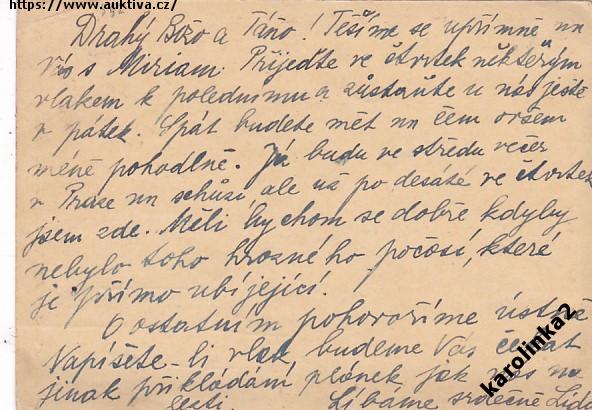 https://www.auktiva.cz/
Drahý Božo a Táňo! Těšíme se upřímně na
Vás s Miriam. Přijeďte ve čtvrtek některým
vlakem k polednímu a zůstaňte u nás ještě
v pátek. Spát budete mět na čem ovšem
méně pohodlně. Já budu ve středu večer
v Praze na schůzi ale už po desáté ve čtvrtek
jsem zde. Měli bychom se dobře kdyby
nebylo toho hrozného počasí, které
je přímo ubíjející.
O ostatním pohovoříme ústně
Napíšete-li vlak budeme Vás čekat
jinak přikládám plánek, jak nás na
Líbáme srdečně Lída
karolinka2